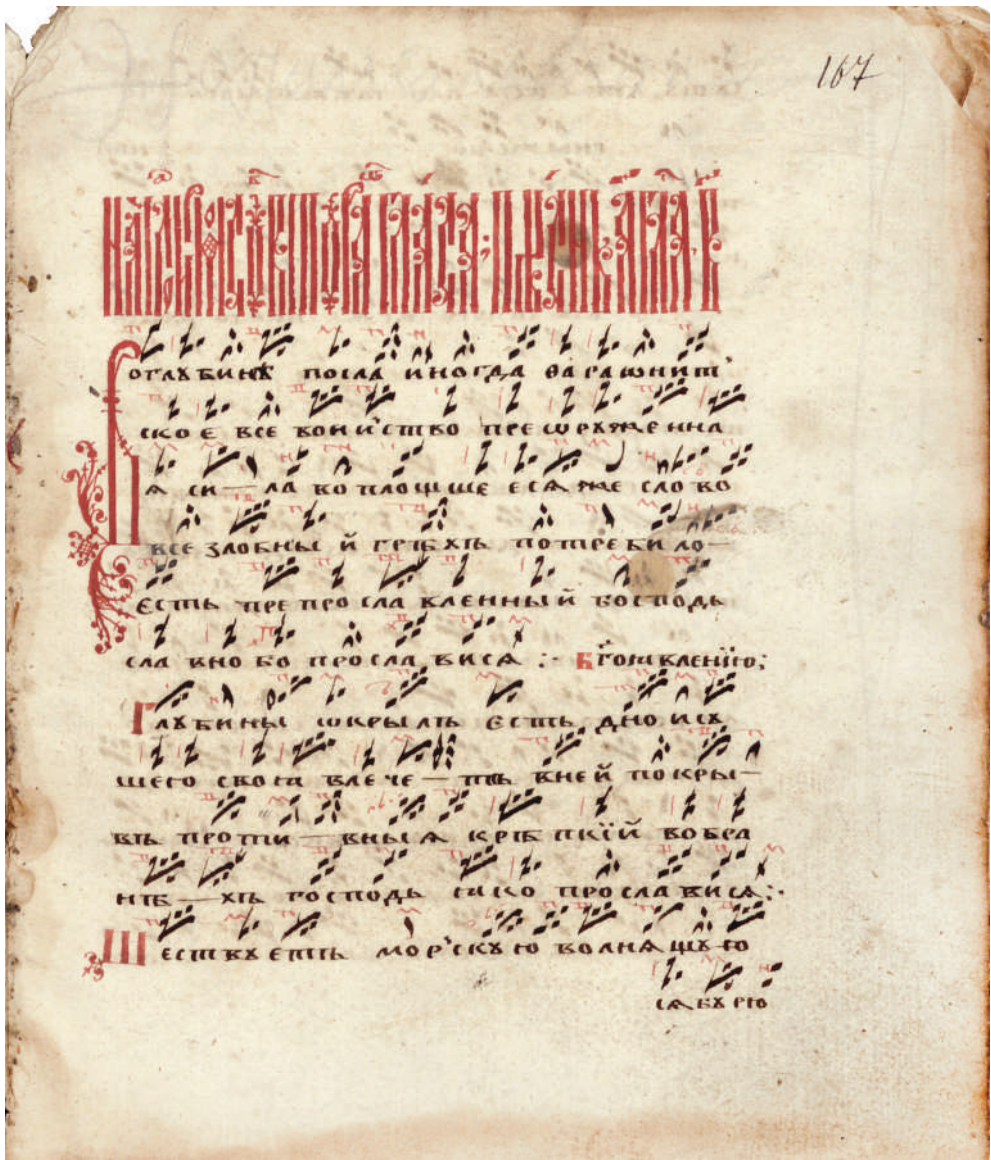 167
отглꙋбинꙋ посла иногда фараѡнит
ское все воиство преѡрꙋженна
я си — ла воплощше есѧ же слово
все злобны й грѣхъ потребило —
есть препрославленный господь
славно бо прославися :· Бгоꙗвленїю:
Глꙋбины ѡкрылъ есть дно и сꙋ
шею своꙗ влече — тъ вней покры —
въ проти — вныѧ крѣпкїй вобра
нѣ — хъ господь ꙗко прославися :·
Шествꙋетъ морскꙋю волнящꙋю
сѧ бꙋрю